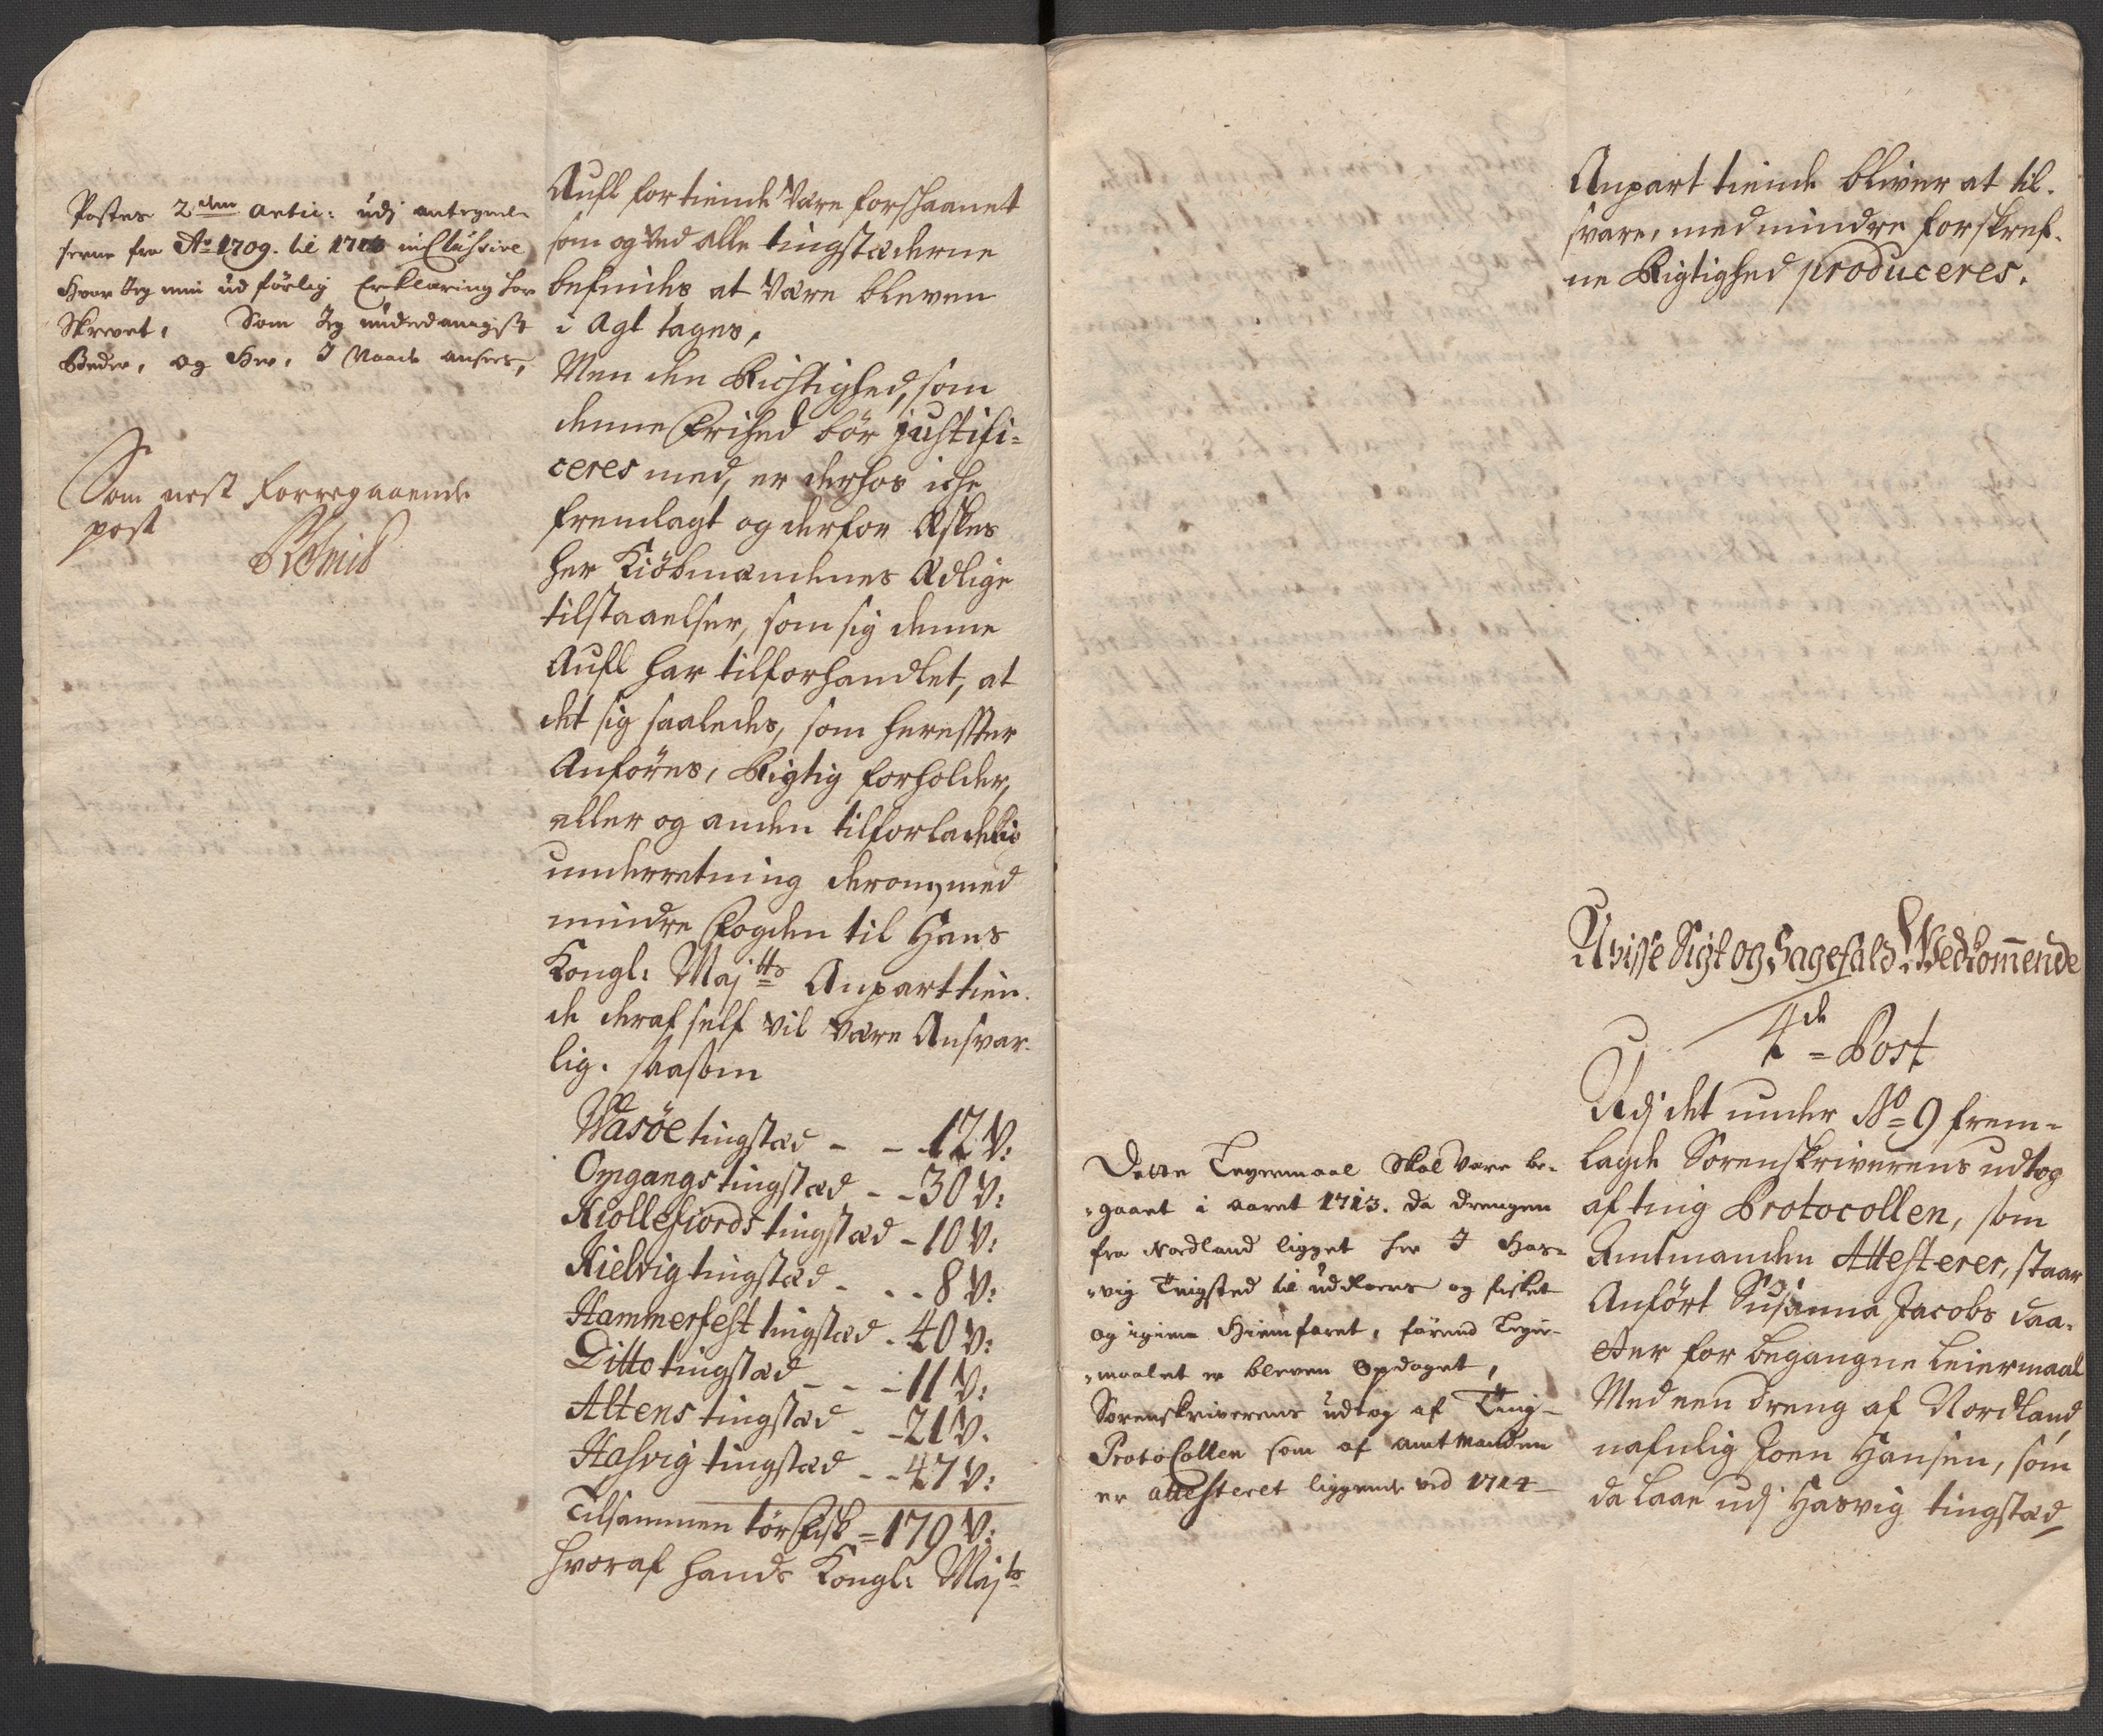 Postes 2den Artic: udj antegnel-
serne fra Ao 1709. til 1713 inclusive
Hvor Jeg min udförlig Erklæring har
Skrevet, Som Jeg underdannigst
Beder, og Her, I Naade ansees,
Som nest forregaaende
post
Aufl for tiende Være forschaanet
som og Ved alle tingstæderne
befindes at Være bleven
i agt tagne,
Men den Richtighed, som
denne Friehed bör justifi-
ceres med, er derhos iche
fremlagt og derfor Æskes
her Kiöbmændenes Ædlige
tilstaaelser, som sig denne
Aufl har tilforhandlet, at
det sig saaledes, som hereffter
Anföres, Rigtig forholder,
eller og anden tilforladelig
underretning derom, med
mindre Fogden til Hans
Kongl: Majtts Anpart tien-
de deraf self Vil Være Ansvar-
lig. saasom
Wasöe tingstæd - - 12 V:
Omgangs tingstæd - - 30 V:
Kiollefiords tingstæd - 10 V:
Kielvig tingstæd - - - 8 V:
Hammerfest tingstæd - 40 V:
Ditto tingstæd - - - 11 V:
Altens tingstæd - - 21 V.
Hasvig tingstæd - - 47 V:
Tilsammen tör Fisk = 179 V:
hvoraf hands Kongl: Majts
Anpart tiende bliver at til-
svare, med mindre forskref-
ne Rigtighed produceres.
Uvisse Sigt og Sagefald Wedkom̅ende
4de = Post
Detta Leyermaal Skal Være be-
gaaet i aaret 1713. da drengen
fra Nordland ligget her I Has-
vig Tingsted til udRoers og fisket
og igien Hiemfaret, förend Leyer-
maalet er bleven Opdaget,
Sorenskriverens udtog af Ting-
ProtoCollen som af amtmanden
er attesteret liggende ved 1714
Udj det under No 9 frem-
lagde Sorenskriverens udtog
af ting Protocollen, som
Amtmanden Attesterer, staar
Anfört Susanna Jacobs daa-
tter for begangne leiermaal
Med een dreng af Nordland
nafnlig Joen Hansen, som
da laae udj Hasvig tingstæd,